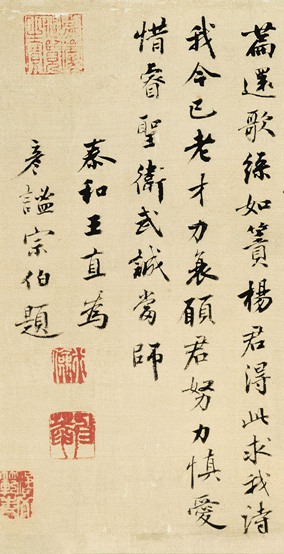 篇還歌綠如簀楊君得此求我詩
我今已老才力衰願君努力慎愛
惜睿聖衛武誠當師
泰和王直為
彥謐宗伯題